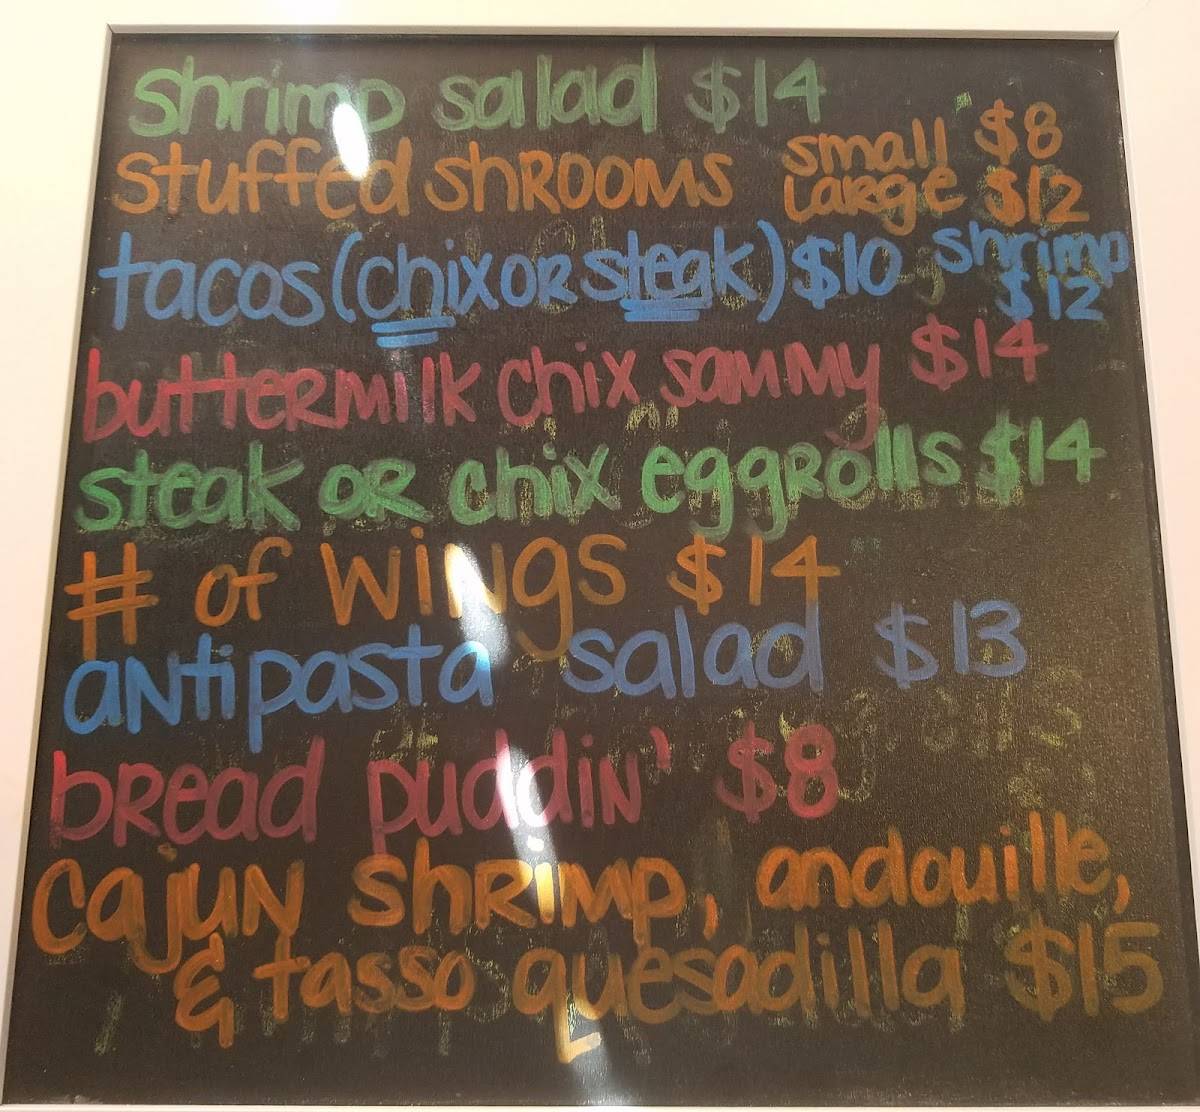 shrimp salad $14
stuffed shROOMS small $8
LARge $12
tacos (chix OR steak) $10 shrimp
$12
butteRMilk chix saMMy $14
steak OR chix eggRolls $14
# of wiNgs $14
aNtipasta salad $13
bRead puddiN' $8
cajuN shRiMp, andouille,
& tasso quesadilla $15